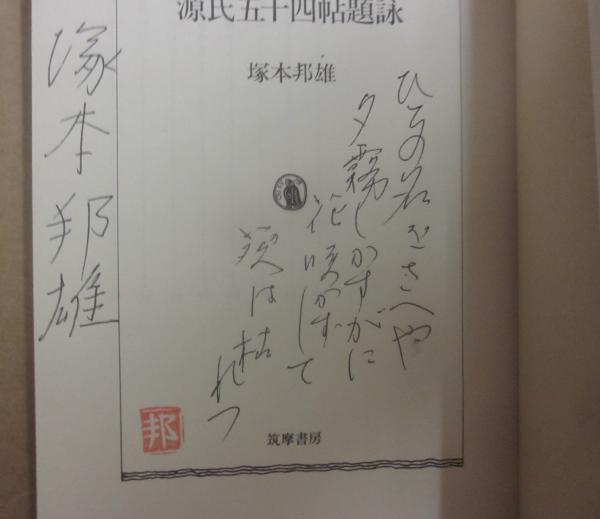 源氏五十四帖題詠
塚本邦雄
ひとの名をさへや
夕霧しかすがに
花咲かずして
は枯れつ
塚本邦雄
邦
筑摩書房